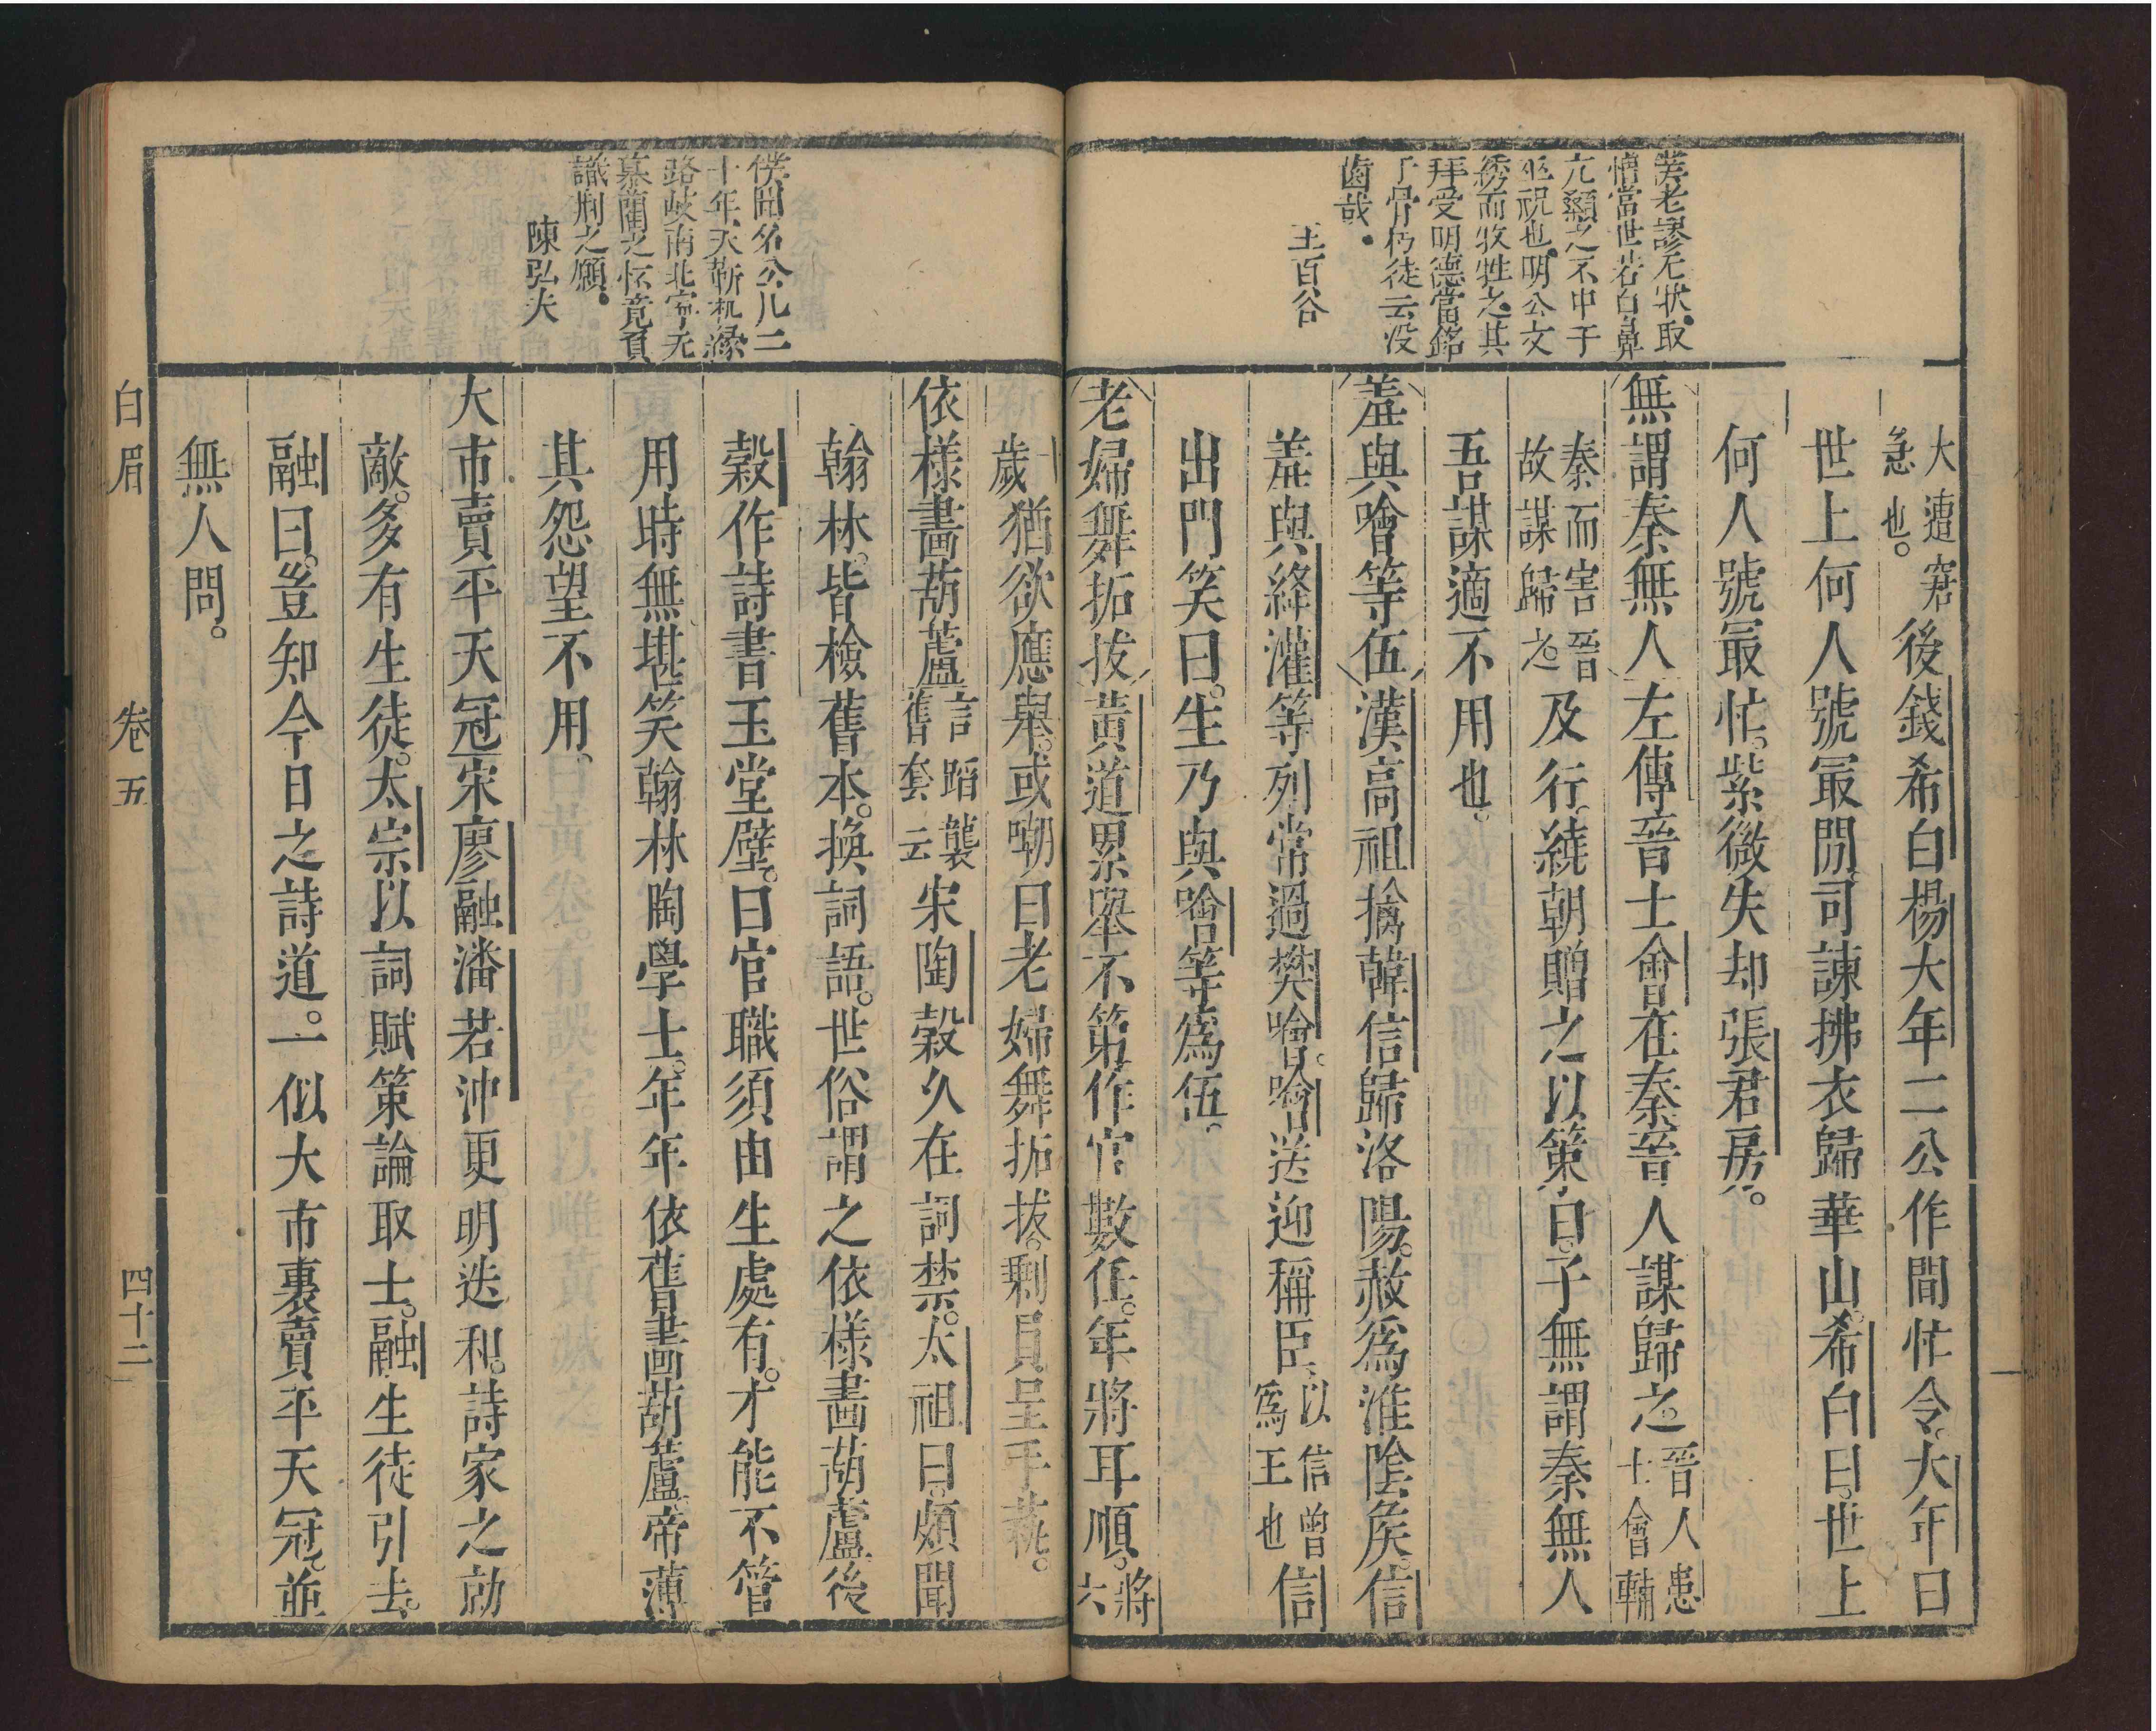 美老謬无狀取
憎當世若白鼻
亢顙之不中于
巫祝也明公文
綉而牧牲之其
拜受明德當銘
了骨朽徒云没
齒哉
王百谷
大遭窘
急也。後錢希白楊大年二公作閒忙令。大年曰
世上何人號最閒。司諫拂衣歸華山。希白曰。世上
何人號最忙。紫微失却張君房。
無謂秦無人左傳晉士會在秦晉人謀歸之。晉人患
士會輔
秦而害晉
故謀歸之。及行。繞朝贈之以策曰。子無謂秦無人
吾謀適不用也。
羞與噲等伍漢高祖擒韓信歸洛陽。赦爲淮陰矦。信
羞與絳灌等列常過樊噲。噲送迎稱臣、以信曾
爲王也信
出門笑曰。生乃與噲等爲伍。
老婦舞拓拔黃道累舉不第作官數任。年將耳順。將
六
十
歲猶欲應舉。或嘲曰老婦舞拓拔。剩員呈手藝。
依樣畵葫蘆言蹈襲
舊套云宋陶穀久在詞禁。太祖曰。頗聞
翰林。皆檢舊本。換詞語。世俗謂之依樣畵葫蘆後
穀作詩書玉堂壁。曰官職須由生處有。才能不管
用時無堪笑翰林陶學士。年年依舊畵葫蘆帝薄
其怨望不用。
大市賣平天冠宋廖融潘若沖更明迭和。詩家之勍
敵。多有生徒。太宗以詞賦策論取士。融生徒引去。
融曰。豈知今日之詩道。一似大市裏賣平天冠。並
無人問。
僕聞名公几二
十年天靳机緣
路岐南北寧无
慕藺之怀竟負
識荆之愿
陳弘夫
白眉
卷五
四十二